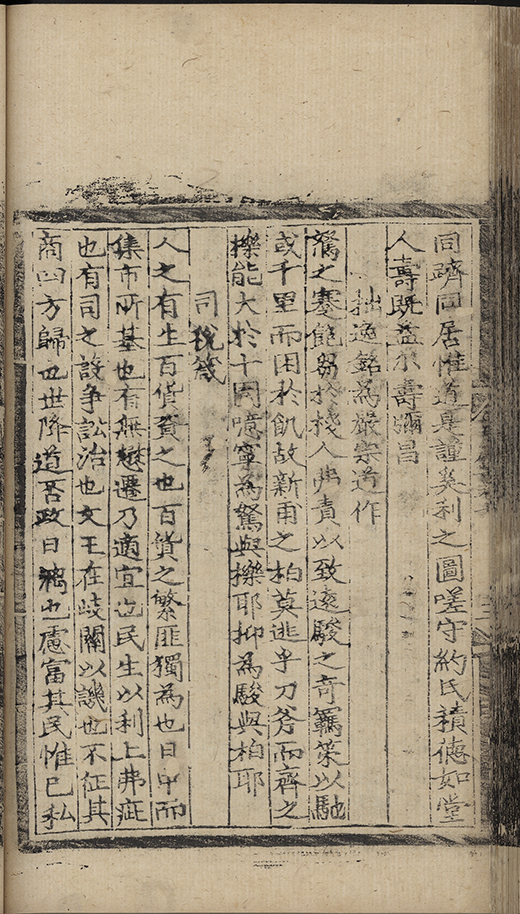 同躋同居惟道是謹奚利之圖嗟守約氏積德如堂
人壽既益永壽彌昌
拙逸銘為嚴宗道作
駑之蹇能芻於棧人弗責以致遠駿之奇羈策以馳
或千里而困於飢故新甫之柏莫逃乎刀斧而齊之
櫟能大於十圍噫寧為駑與櫟耶抑為駿與柏耶
司稅箴
人之有生百貨資之也百貨之繁匪獨為也日中而
集市所基也有無懋遷乃適宜也民生以利上弗疵
也有司之設争訟治也文王在岐關以譏也不征其
商四方歸也世降道否政日漓也慮富其民惟已私